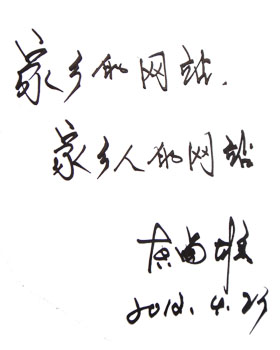 家乡的网站.
家乡人的网站
2012.4.25